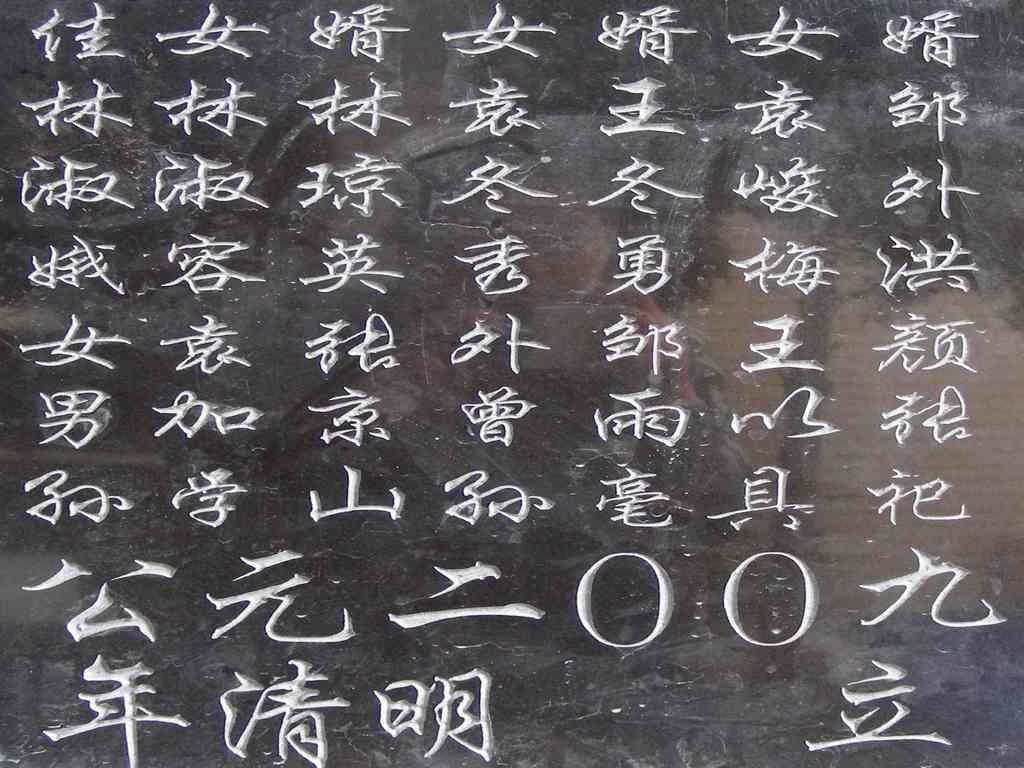 佳林淑娥女男孙
女林淑容袁加学
婿林琼英张京山
女袁冬秀外曾孙
婿王冬勇邹雨毫
女袁峻梅王以具
婿邹外洪颜张祀
公元二〇〇九
年清明 立